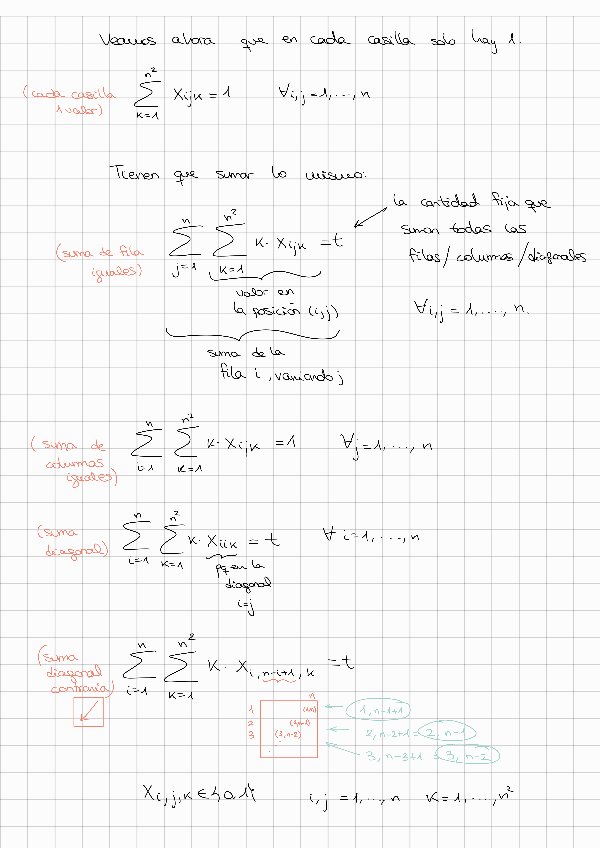 Veamos ahora que en cada casilla solo hay 1.
(cada casilla 1 valor)
n²
∑ Xijk = 1 ∀i,j = 1, ..., n
k=1
Tienen que sumar lo mismo:
la cantidad fija que
suman todas las
filas/columnas/diagonales
(suma de fila iguales)
n n²
∑ ∑ k· Xijk = t
j=1 k=1
valor en
la posición (i,j)
∀i,j = 1, ..., n.
suma de la
fila i, variando j
(suma de columnas iguales)
n n²
∑ ∑ k· Xijk = 1 ∀j = 1, ..., n
i=1 k=1
(suma diagonal)
n n²
∑ ∑ k· Xiik = t ∀ i=1, ..., n
i=1 k=1
pq en la
diagonal
i=j
(suma diagonal contraria)
n n²
∑ ∑ k· Xi,n-i+1,k = t
i=1 k=1
n
1 (1,n) 1, n-1+1
2 (2,n-1) 2, n-2+1 = 2, n-1
3 (3,n-2) 3, n-3+1 = 3, n-2
Xi,j,k ∈ {0,1} i,j = 1, ..., n k = 1, ..., n²